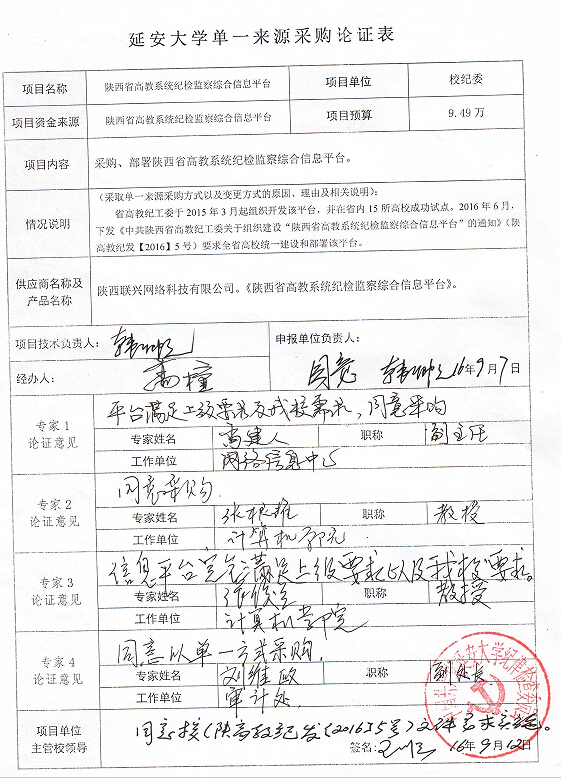 延安大学单一来源采购论证表
项目名称 陕西省高教系统纪检监察综合信息平台 项目单位 校纪委
项目资金来源 陕西省高教系统纪检监察综合信息平台 项目预算 9.49 万
项目内容 采购、部署陕西省高教系统纪检监察综合信息平台。
情况说明
(采取单一来源采购方式以及变更方式的原因、理由及相关说明):
省高教纪工委于 2015 年 3 月起组织开发该平台，并在省内 15 所高校成功试点。2016 年 6 月，
下发《中共陕西省高教纪工委关于组织建设“陕西省高教系统纪检监察综合信息平台”的通知》(陕
高教纪发【2016】5 号) 要求全省高校统一建设和部署该平台。
供应商名称及
产品名称
陕西联兴网络科技有限公司。《陕西省高教系统纪检监察综合信息平台》。
项目技术负责人： 申报单位负责人：
经办人： 同意 16年9月7日
专家 1
论证意见
平台满足上级要求及我校需求，同意采购
专家姓名 高建人 职称 副主任
工作单位 网络信息中心
专家 2
论证意见
同意采购.
专家姓名 职称 教授
工作单位 计算机
专家 3
论证意见
信息平台完全满足上级要求以及我校要求。
专家姓名 职称 教授
工作单位 计算机学院
专家 4
论证意见
同意以单一方式采购.
专家姓名 刘维政 职称 副处长
工作单位 审计处.
项目单位
主管校领导
同意按(陕高教纪发(2016)5号)文件要求实施。
签名： 16年9月12日